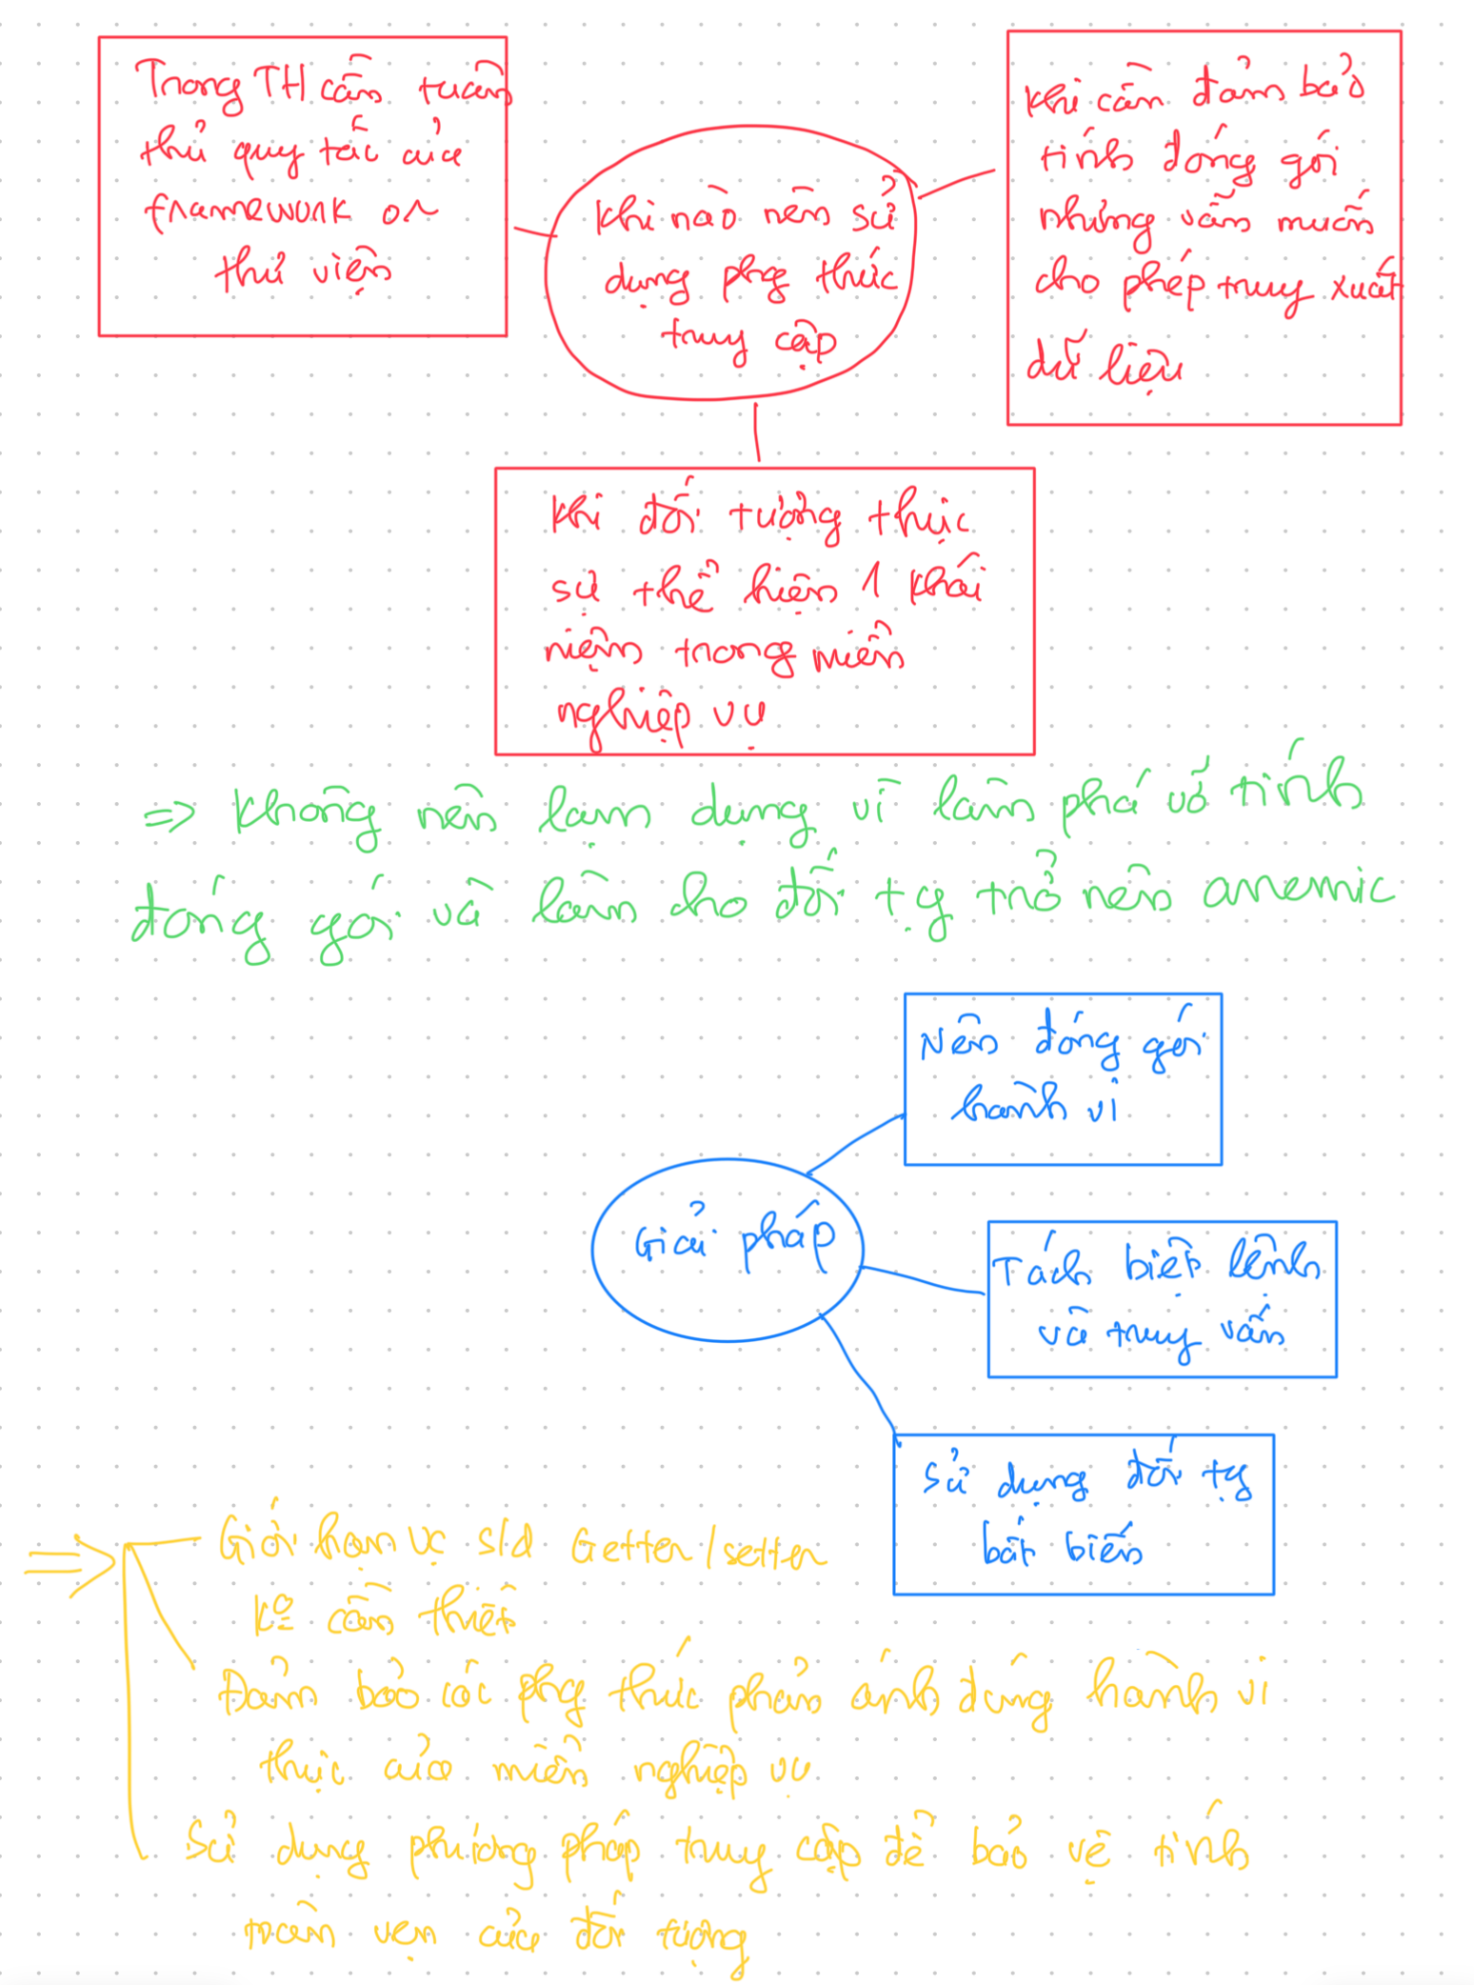 Trong TH cần tuân
thủ quy tắc của
framework or
thư viện
Khi nào nên sử
dụng phg thức
truy cập
Khi cần đảm bảo
tính đóng gói
nhưng vẫn muốn
cho phép truy xuất
dữ liệu
Khi đối tượng thực
sự thể hiện 1 khái
niệm trong miền
nghiệp vụ
=> Không nên lạm dụng vì làm phá vỡ tính
đóng gói và làm cho đối tg trở nên anemic
Nên đóng gói
hành vi
Giải pháp
Tách biệt lệnh
và truy vấn
Sử dụng đối tg
bất biến
=> Giới hạn vc s/d Getter/setter
ko cần thiết
Đảm bảo các phg thức phản ánh đúng hành vi
thực của miền nghiệp vụ
Sử dụng phương pháp truy cập để bảo vệ tính
toàn vẹn của đối tượng